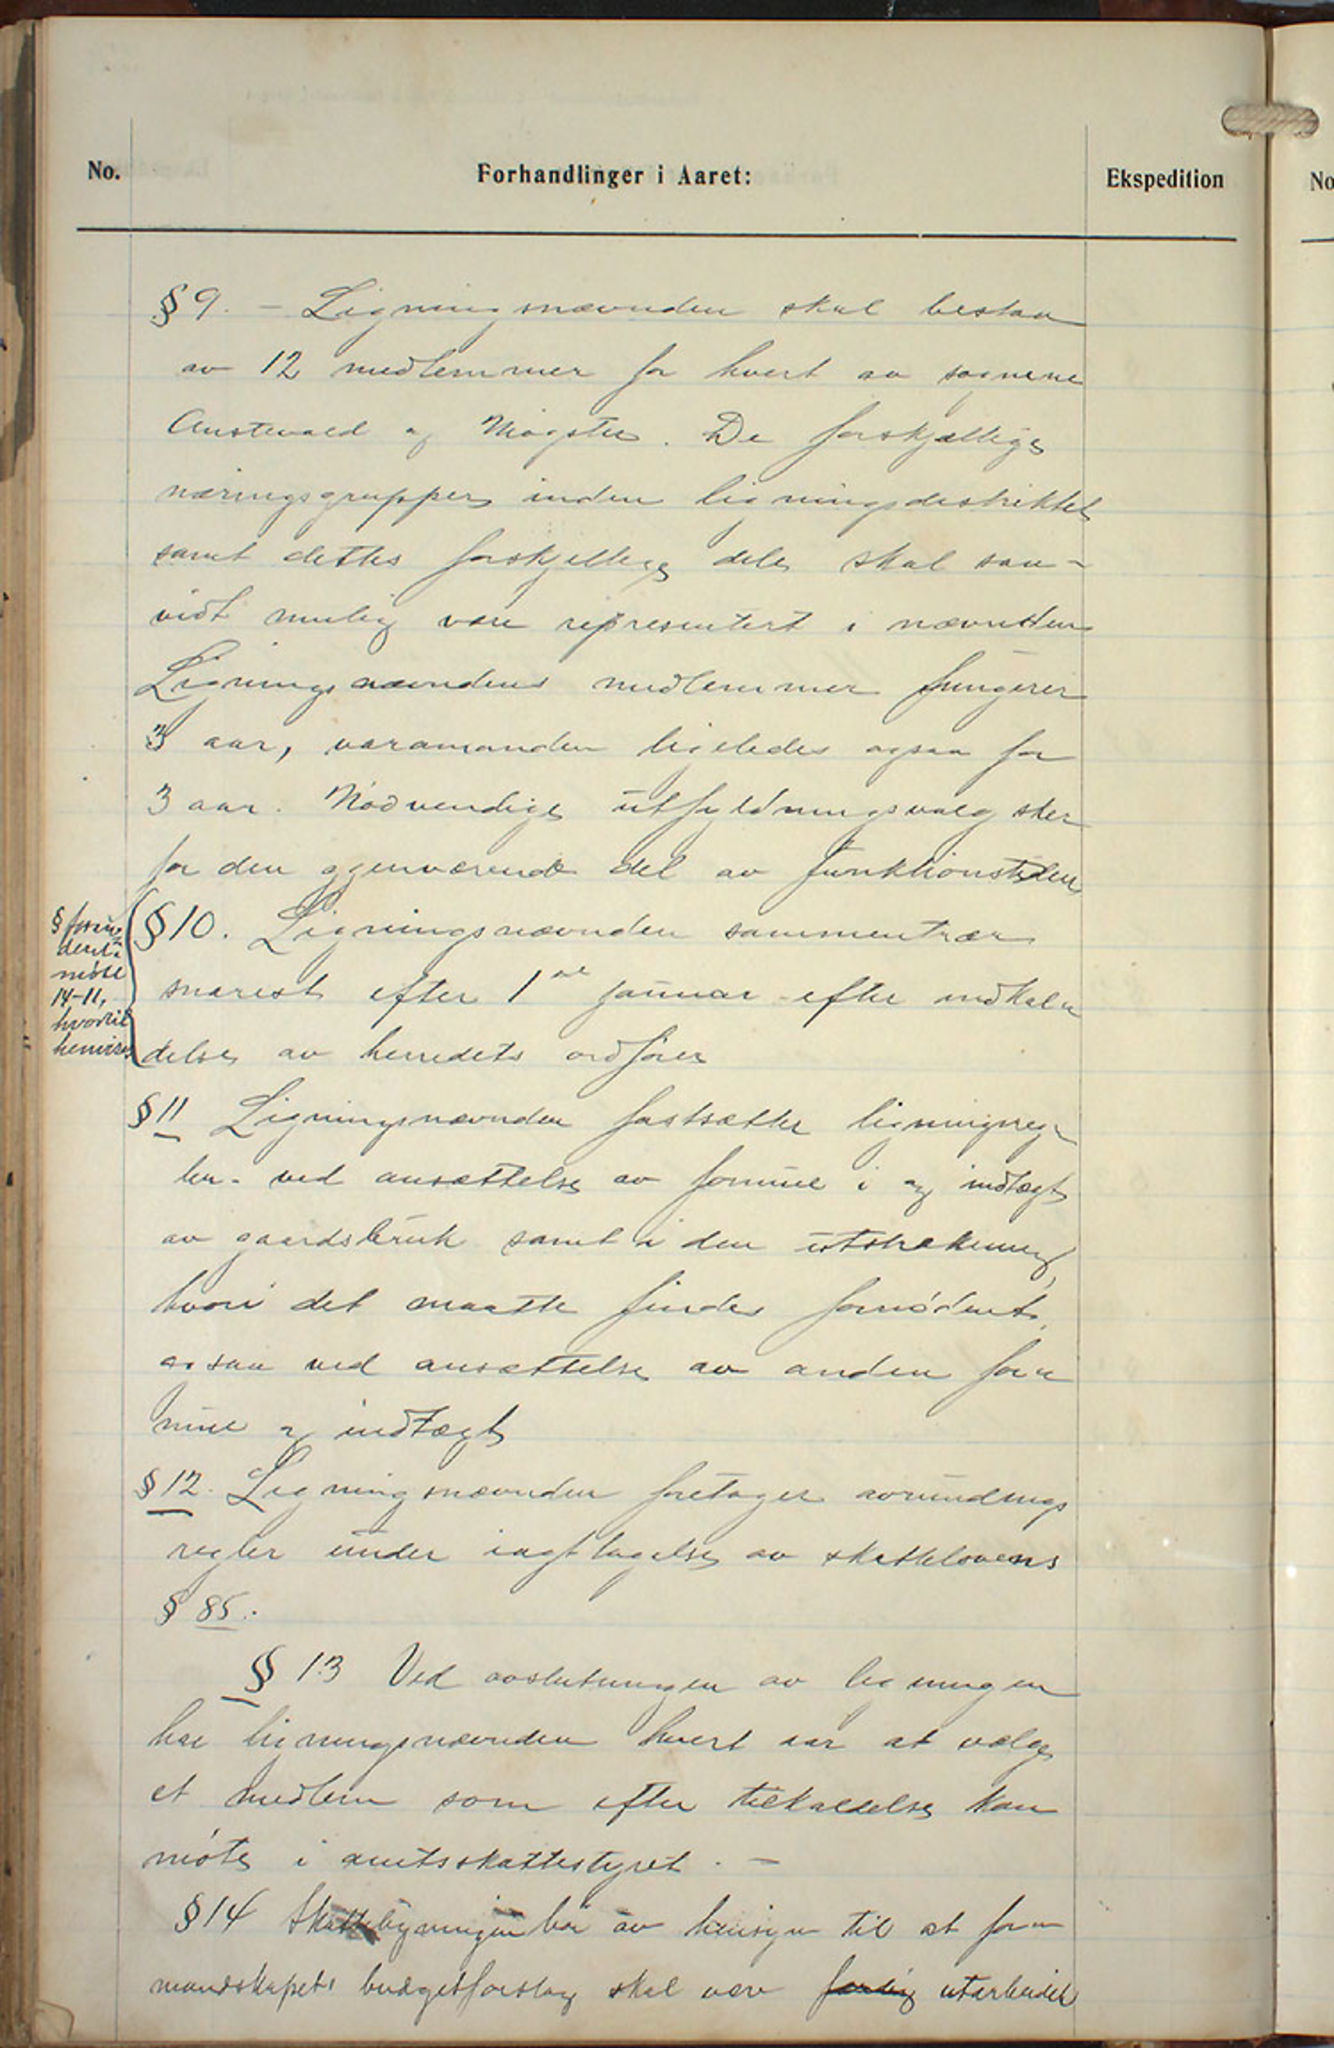 No.
Forhandlinger i Aaret:
Ekspedition
No
§ 9. – Ligningsnævnden skal bestaa
av 12 medlemmer for hvert av sognene
Austevold og Møgster. De forskjællige
næringsgrupper inden ligningsdistriktet
samt dettes forskjellige dele skal saa-
vidt mulig være repræsentert i nævnden
Ligningsnævndens medlemmer fungerer
3 aar, varamænden ligeledes ogsaa for
3 aar. Nødvendige utfyldningsvalg sker
for den gjenværende del av funktionstiden
§ foran-
dret i
møte
14-11,
hvortil
henvises
§ 10. Ligningsnævnden sammentræer
snarest efter 1ste januar efter indkal-
delse av herredets ordfører
§ 11 Ligningsnævnden fastsætter ligningsreg-
ler ved ansættelse av formue i og indtægt
av gaardsbruk samt i den utstrækning,
hvori det maatte findes fornødent,
ogsaa ved ansættelse av anden for-
mue og indtægt
§ 12. Ligningsnævnden foretager avrundings
regler under iagttagelse av skattelovens
§ 85.
§ 13 Ved avslutningen av ligningen
har ligningsnævnden hvert aar at vælge
et medlem som efter tilkaldelse kan
møte i amtsskattestyret. –
§ 14 Skatteligningen bør av hensyn til at for-
mandskapets budgetforslag skal være færdig utarbeidet